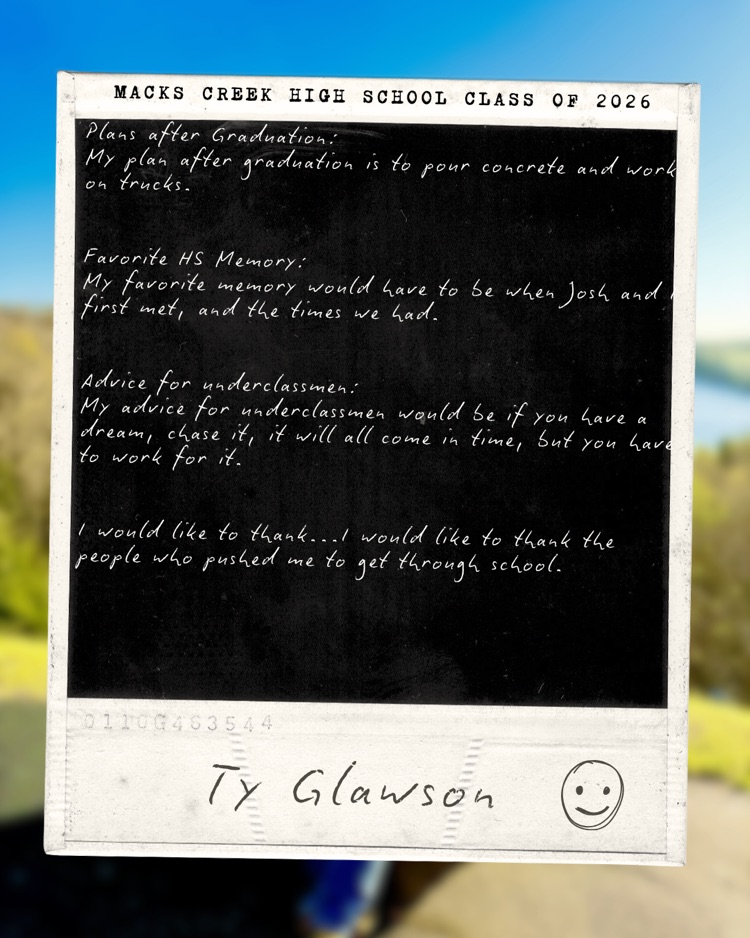 MACKS CREEK HIGH SCHOOL CLASS OF 2026
Plans after Graduation:
My plan after graduation is to pour concrete and work
on trucks.
Favorite HS Memory:
My favorite memory would have to be when Josh and I
first met, and the times we had.
Advice for underclassmen:
My advice for underclassmen would be if you have a
dream, chase it, it will all come in time, but you have
to work for it.
I would like to thank...I would like to thank the
people who pushed me to get through school.
0110G463544
Ty Glawson